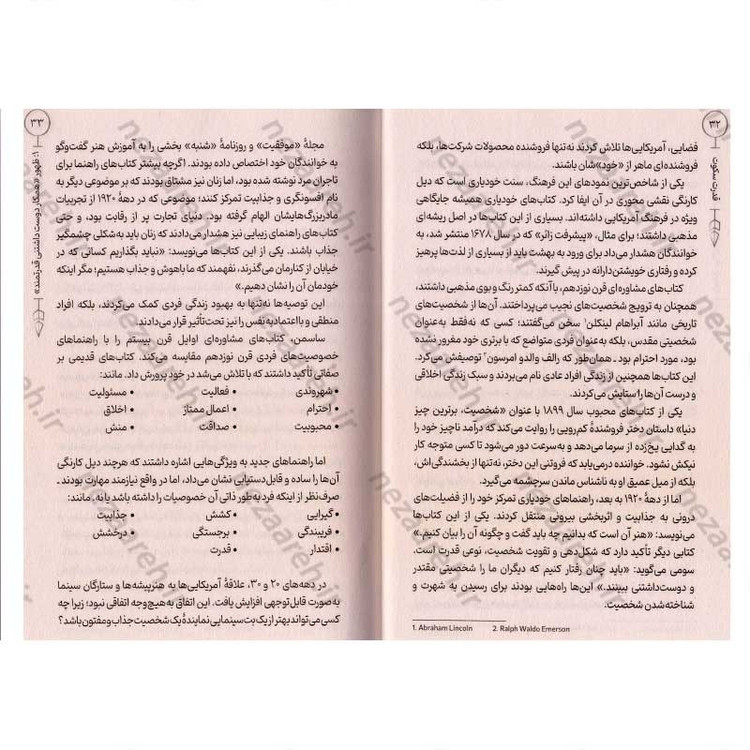 ۳۲
قدرت سکوت
فضایی، آمریکایی‌ها تلاش کردند نه‌تنها فروشنده محصولات شرکت‌ها، بلکه
فروشنده‌ای ماهر از «خود»شان باشند.
یکی از شاخص‌ترین نمودهای این فرهنگ، سنت خودیاری است که دیل
کارنگی نقشی محوری در آن ایفا کرد. کتاب‌های خودیاری همیشه جایگاهی
ویژه در فرهنگ آمریکایی داشته‌اند. بسیاری از این کتاب‌ها در اصل ریشه‌ای
مذهبی داشتند؛ برای مثال، «پیشرفت زائر» که در سال ۱۶۷۸ منتشر شد، به
خوانندگان هشدار می‌داد برای ورود به بهشت باید از بسیاری از لذت‌ها پرهیز
کرده و رفتاری خویشتن‌دارانه در پیش گیرند.
کتاب‌های مشاوره‌ای قرن نوزدهم، با آنکه کمتر رنگ و بوی مذهبی داشتند،
همچنان به ترویج شخصیت‌های نجیب می‌پرداختند. آن‌ها از شخصیت‌های
تاریخی مانند آبراهام لینکلن۱ سخن می‌گفتند؛ کسی که نه‌فقط به‌عنوان
شخصیتی مقدس، بلکه به‌عنوان فردی متواضع که با برتری خود مغرور نشده
بود، مورد احترام بود ـ همان‌طور که رالف والدو امرسون۲ توصیفش می‌کرد.
این کتاب‌ها همچنین از زندگی افراد عادی نام می‌بردند و سبک زندگی اخلاقی
و درست آن‌ها را ستایش می‌کردند.
یکی از کتاب‌های محبوب سال ۱۸۹۹ با عنوان «شخصیت، برترین چیز
دنیا» داستان دختر فروشندهٔ کم‌رویی را روایت می‌کند که درآمد ناچیز خود را
به گدایی یخ‌زده از سرما می‌دهد و به‌سرعت دور می‌شود تا کسی متوجه کار
نیکش نشود. خواننده درمی‌یابد که فروتنی این دختر، نه‌تنها از بخشندگی‌اش،
بلکه از میل عمیق او به ناشناس ماندن سرچشمه می‌گیرد.
اما از دههٔ ۱۹۲۰ به بعد، راهنماهای خودیاری تمرکز خود را از فضیلت‌های
درونی به جذابیت و اثربخشی بیرونی منتقل کردند. یکی از این کتاب‌ها
می‌نویسد: «هنر آن است که بدانیم چه باید گفت و چگونه آن را بیان کنیم.»
کتابی دیگر تأکید دارد که شکل‌دهی و تقویت شخصیت، نوعی قدرت است.
سومی می‌گوید: «باید چنان رفتار کنیم که دیگران ما را شخصیتی مقتدر
و دوست‌داشتنی ببینند.» این‌ها راه‌هایی بودند برای رسیدن به شهرت و
شناخته‌شدن شخصیت.
1. Abraham Lincoln 2. Ralph Waldo Emerson
۳۳
۱: ظهور «همکار دوست داشتنی قدرتمند»
مجلهٔ «موفقیت» و روزنامهٔ «شنبه» بخشی را به آموزش هنر گفت‌وگو
به خوانندگان خود اختصاص داده بودند. اگرچه بیشتر کتاب‌های راهنما برای
تاجران مرد نوشته شده بود، اما زنان نیز مشتاق بودند که بر موضوعی دیگر به
نام افسونگری و جذابیت تمرکز کنند؛ موضوعی که در دههٔ ۱۹۲۰ از تجربیات
مادربزرگ‌هایشان الهام گرفته بود. دنیای تجارت پر از رقابت بود، و حتی
کتاب‌های راهنمای زیبایی نیز هشدار می‌دادند که زنان باید به‌شکلی چشمگیر
جذاب باشند. یکی از این کتاب‌ها می‌نویسد: «نباید بگذاریم کسانی که در
خیابان از کنارمان می‌گذرند، نفهمند که ما باهوش و جذاب هستیم؛ مگر اینکه
خودمان آن را نشان دهیم.»
این توصیه‌ها نه‌تنها به بهبود زندگی فردی کمک می‌کردند، بلکه افراد
منطقی و بااعتمادبه‌نفس را نیز تحت‌تأثیر قرار می‌دادند.
ساسمن، کتاب‌های مشاوره‌ای اوایل قرن بیستم را با راهنماهای
خصوصیت‌های فردی قرن نوزدهم مقایسه می‌کند. کتاب‌های قدیمی بر
صفاتی تأکید داشتند که با تلاش می‌شد در خود پرورش داد. مانند:
• شهروندی • فعالیت • مسئولیت
• احترام • اعمال ممتاز • اخلاق
• محبوبیت • صداقت • منش
اما راهنماهای جدید به ویژگی‌هایی اشاره داشتند که هرچند دیل کارنگی
آن‌ها را ساده و قابل‌دستیابی نشان می‌داد، اما در واقع نیازمند مهارت بودند ـ
صرف‌نظر از اینکه فرد به‌طور ذاتی آن خصوصیات را داشته باشد یا نه. مانند:
• گیرایی • کشش • جذابیت
• فریبندگی • برجستگی • درخشش
• اقتدار • قدرت
در دهه‌های ۲۰ و ۳۰، علاقهٔ آمریکایی‌ها به هنرپیشه‌ها و ستارگان سینما
به صورت قابل‌توجهی افزایش یافت. این اتفاق به‌هیچ‌وجه اتفاقی نبود؛ زیرا چه
کسی می‌تواند بهتر از یک بت سینمایی نمایندهٔ یک شخصیت جذاب و مفتون باشد؟
nezaaleh.ir